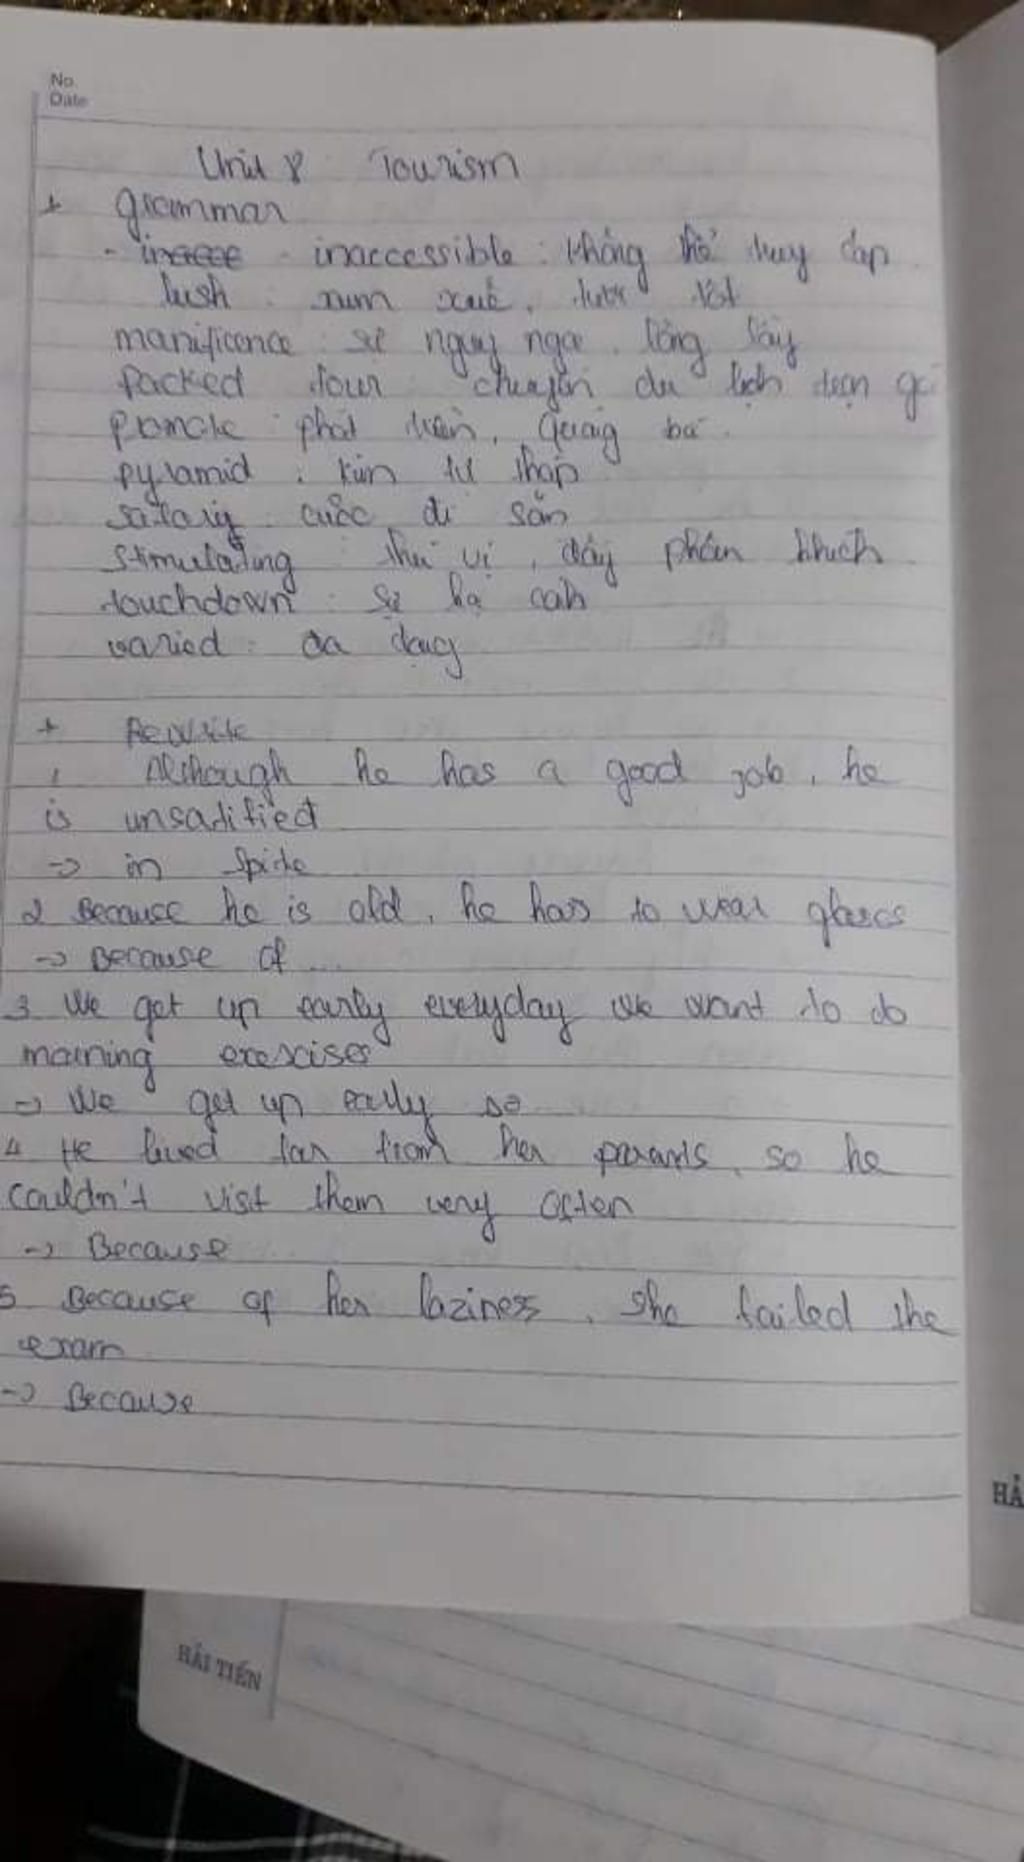 No.
Date
Unit 8 Tourism
+ grammar
- inacce - inaccessible : không thể truy cập
lush : xum xuê, tươi tốt
manificence : sự nguy nga, lộng lẫy
packed tour : chuyến du lịch trọn gó
promote : phát triển, Quảng bá.
pyramid : kim tự tháp
safary : cuộc đi săn
stimulating : thú vị, đầy phấn khích
touchdown : sự hạ cah
varied : đa dạng
+ Rewrite
1 Although he has a good job, he
is unsatified
-> in spite
2 Because he is old, he has to wear glases
-> Because of ...
3 We get up early everyday we want to do
morning exercises
-> We get up early so
4 He lived far from her parents, so he
couldn't visit them very often
-> Because
5 Because of her laziness, she failed the
exam
-> Because
HẢ
HẢI TIẾN